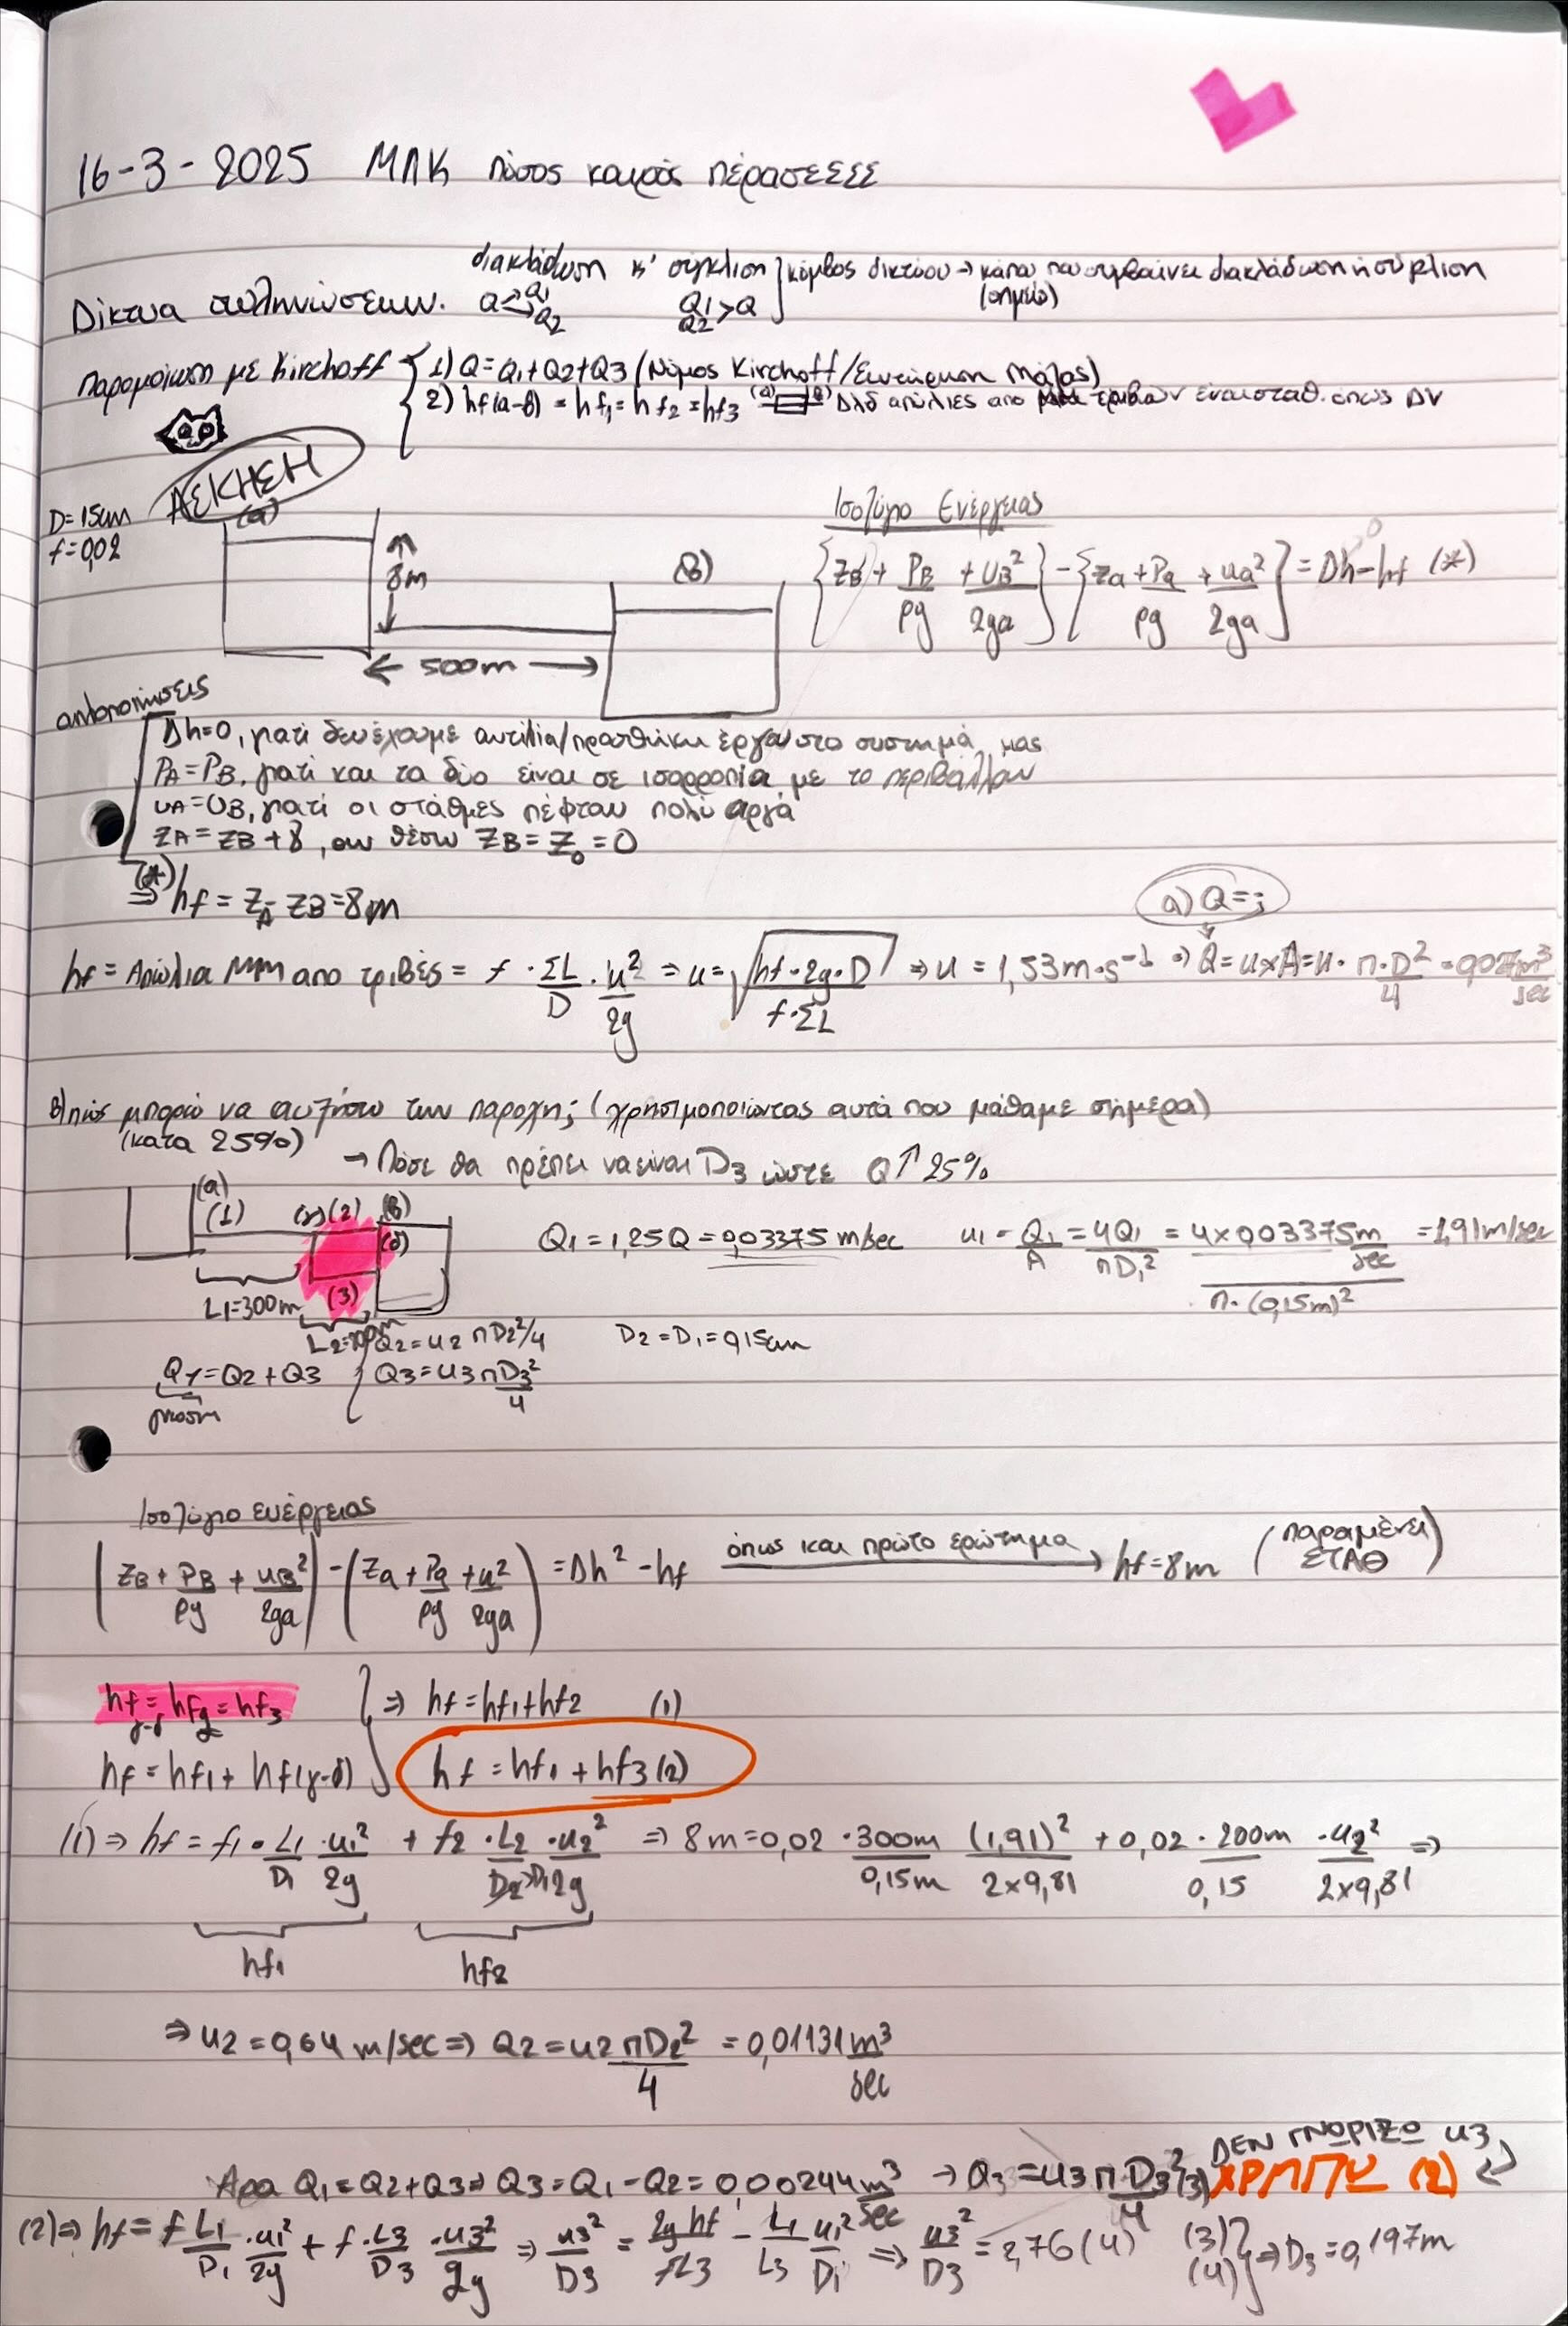 16-3-2025 ΜΛΚ πόσος καιρός πέρασεΣΣΣ
διακλάδωση κ' σύγκλιση } κόμβος δικτύου → κάπου που συμβαίνει διακλάδωση ή σύγκλιση
(σημείο)
Δίκτυα σωληνώσεων. Q < Q1 Q2 Q1 Q2 > Q
παρομοίωση με Kirchoff { 1) Q = Q1 + Q2 + Q3 (Νόμος Kirchoff/Συντήρηση Μάζας)
2) hf(α-β) = hf1 = hf2 = hf3 (α) (β) Δλδ απώλιες απο τριβών είναι σταθ. όπως ΔV
ΑΣΚΗΣΗ
D = 15cm
f = 0,02
(α)
8m
(β)
← 500m →
Ισοζύγιο Ενέργειας
{zB + PB/ρg + uB²/2ga} - {za + Pa/ρg + ua²/2ga} = Δh - hf (*)
0
απλοποιήσεις
Δh=0, γιατί δεν έχουμε αντλία/προσθήκη έργου στο συστημά μας
PA = PB, γιατί και τα δύο είναι σε ισορροπία με το περιβάλλον
uA = uB, γιατί οι στάθμες πέφτουν πολύ αργά
zA = zB + 8, αν θέσω zB = z0 = 0
(*) ⇒ hf = zA - zB = 8m
α) Q = ;
hf = Απώλια ΜΜ απο τριβές = f · ΣL/D · u²/2g ⇒ u = √(hf · 2g · D / f · ΣL) ⇒ u = 1,53 m·s⁻¹ ⇒ Q = u x A = u · π·D²/4 = 0,027 m³/sec
β) πώς μπορώ να αυξήσω την παροχή; (χρησιμοποιώντας αυτά που μάθαμε σήμερα)
(κατα 25%)
→ Πόσο θα πρέπει να είναι D3 ώστε Q ↑ 25%
(α) (1) (γ) (2) (β) (δ)
(3)
L1=300m
L2=200m
Q1 = 1,25Q = 0,03375 m/sec u1 = Q1/A = 4Q1/πD1² = 4x0,03375 m/sec / π·(0,15m)² = 1,91 m/sec
Q2 = u2 πD2²/4 D2 = D1 = 0,15cm
Q1 = Q2 + Q3 Q3 = u3 πD3²/4
γνωστη
Ισοζύγιο ενέργειας
(zB + PB/ρg + uB²/2ga) - (za + Pa/ρg + u²/2ga) = Δh² - hf όπως και πρώτο ερώτημα → hf = 8m (παραμένει ΣΤΑΘ)
hf γ-δ = hf2 = hf3 ⇒ hf = hf1 + hf2 (1)
hf = hf1 + hf(γ-δ) hf = hf1 + hf3 (2)
(1) ⇒ hf = f1 · L1/D1 · u1²/2g + f2 · L2/D2→D1 · u2²/2g ⇒ 8m = 0,02 · 300m/0,15m (1,91)²/2x9,81 + 0,02 · 200m/0,15 · u2²/2x9,81 ⇒
hf1 hf2
⇒ u2 = 0,64 m/sec ⇒ Q2 = u2 πD2²/4 = 0,01131 m³/sec
ΔΕΝ ΓΝΩΡΙΖΩ u3
Αρα Q1 = Q2 + Q3 ⇒ Q3 = Q1 - Q2 = 0,00244 m³/sec → Q3 = u3 πD3²/4 (3) ΧΡΗΠΥ (2)
(2) ⇒ hf = f L1/D1 · u1²/2g + f · L3/D3 · u3²/2g ⇒ u3²/D3 = 2g hf/fL3 - L1/L3 u1²/D1 ⇒ u3²/D3 = 2,76 (4) (3) (4) } ⇒ D3 = 0,197m